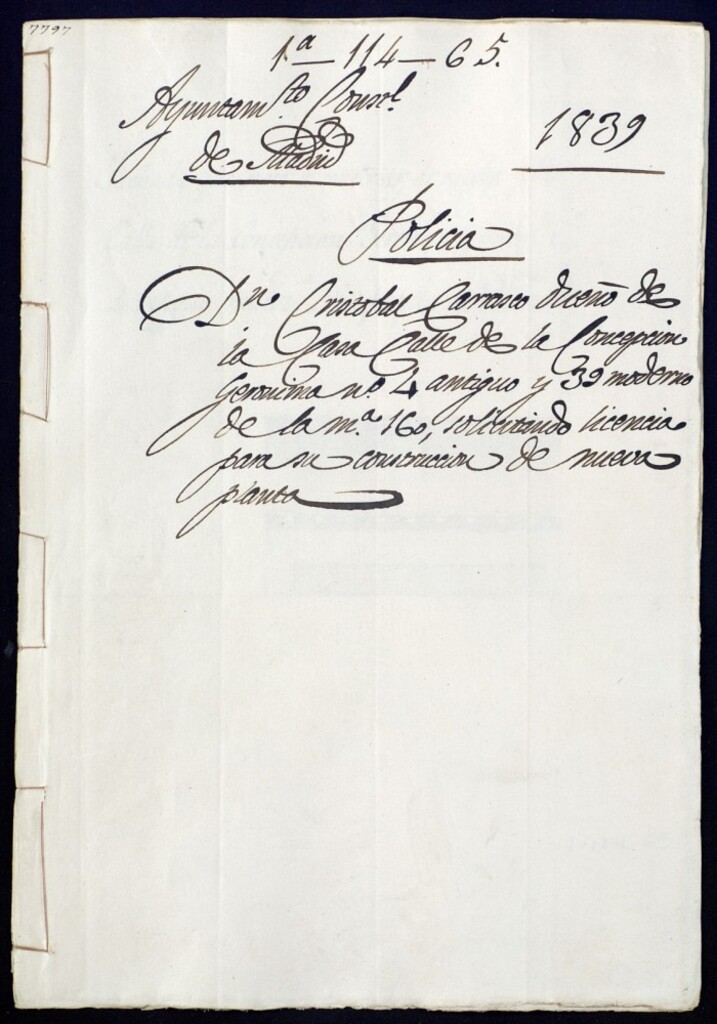 7797
1ª—114—65.
Ayuntam.to Const.l
de Madrid
1839
Policia
Dn. Cristobal Carrasco dueño de
la Casa Calle de la Concepcion
Geronima nº 4 antiguo y 39 moderno
de la m.ª 160, solicitando licencia
para su construccion de nueva
planta